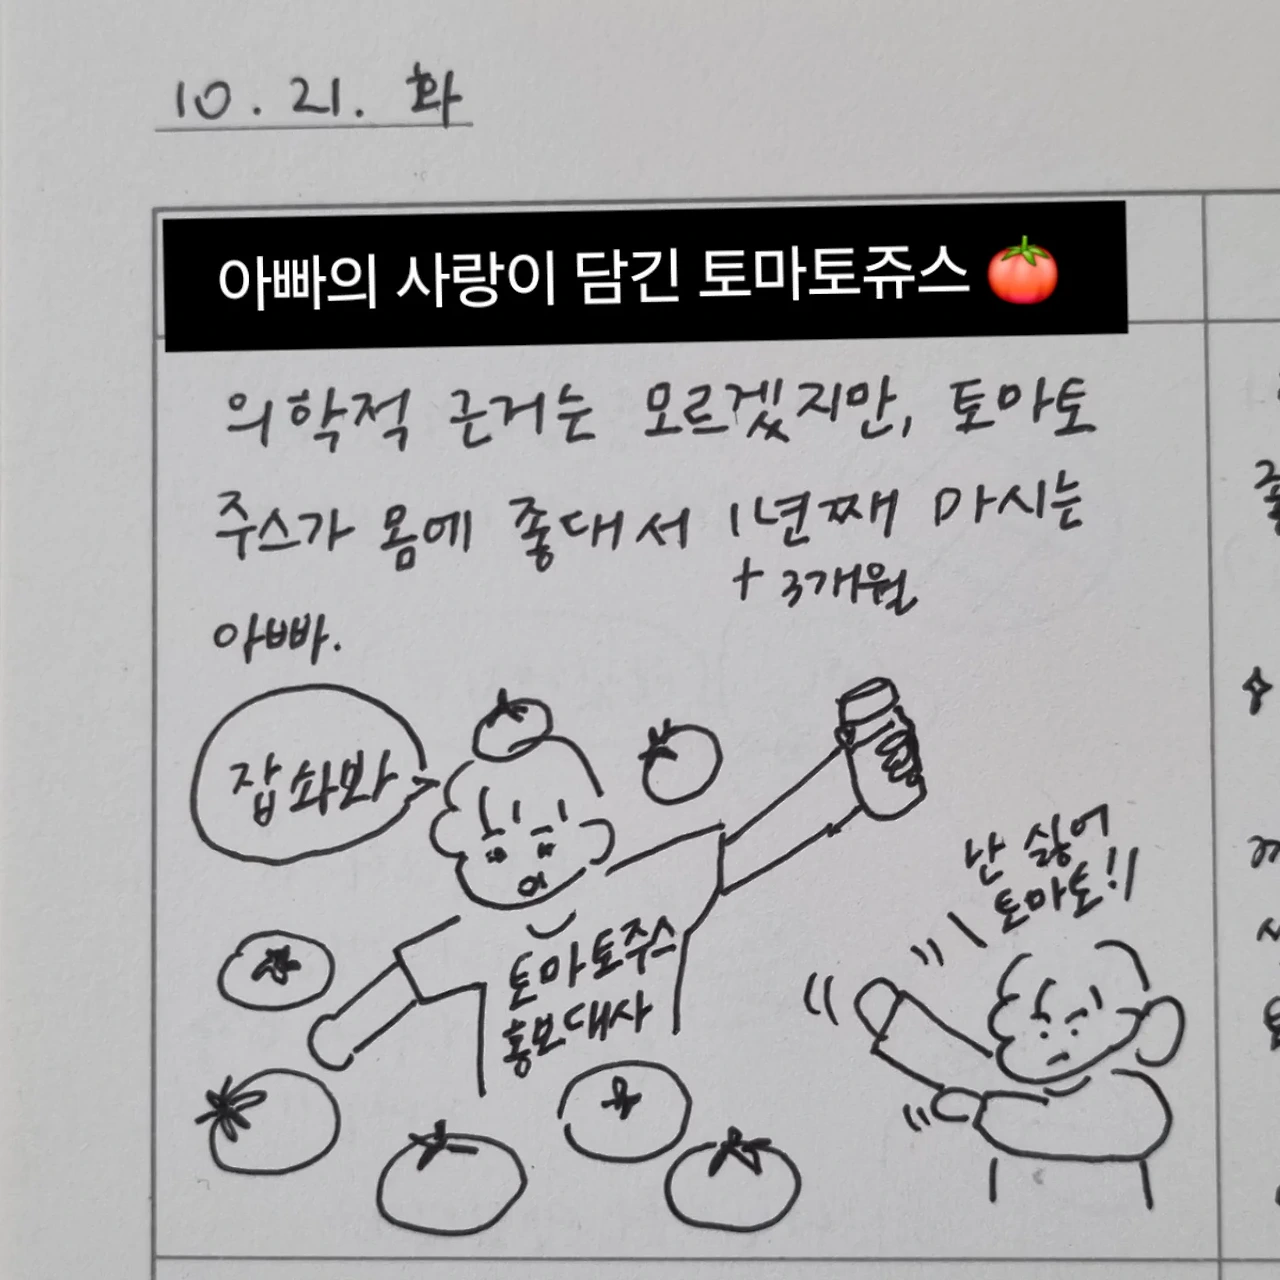 10. 21. 화
아빠의 사랑이 담긴 토마토쥬스 🍅
의학적 근거는 모르겠지만, 토마토
주스가 몸에 좋대서 1년째 마시는
+ 3개월
아빠.
잡솨봐
토마토주스
홍보대사
난 싫어
토마토!!